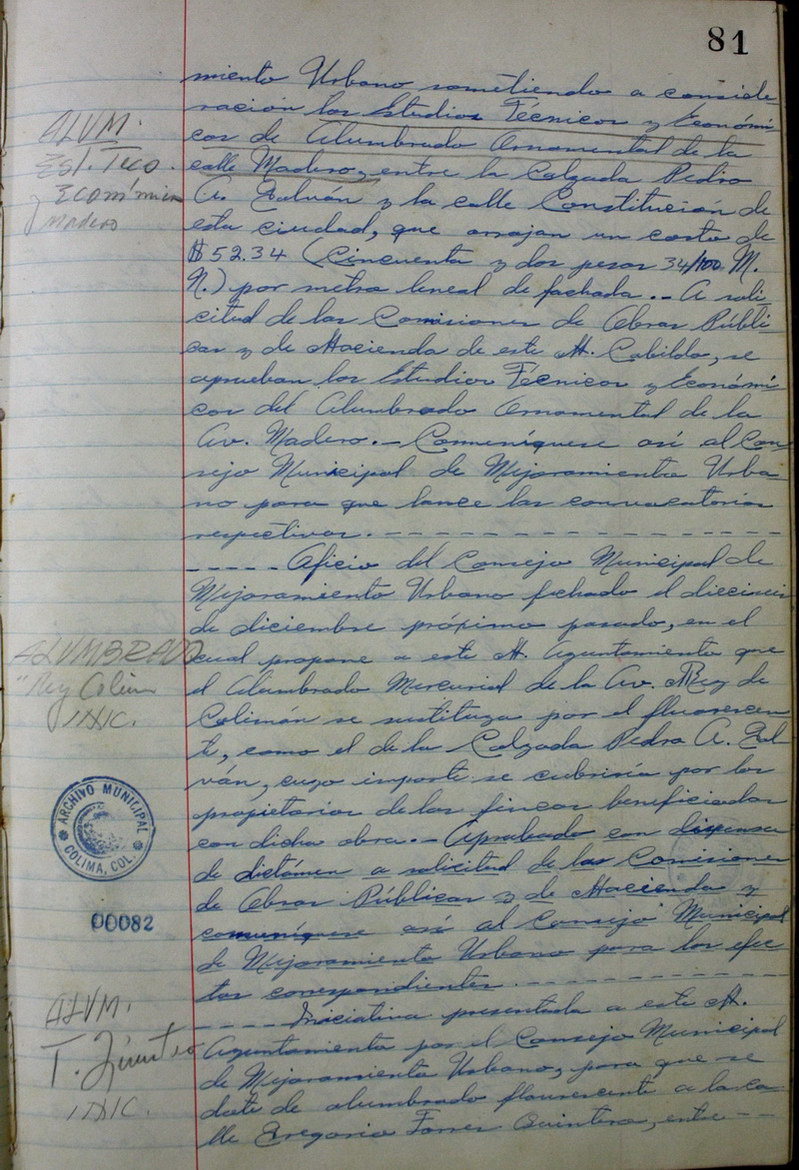 81
miento Urbano sometiendo a conside
ración los Estudios Técnicos y Económi
cos de Alumbrado Ornamental de la
calle Madero, entre la Calzada Pedro
A. Galván y la calle Constitución de
esta ciudad, que arrojan un costo de
$52.34 (Cincuenta y dos pesos 34/100 M.
N.) por metro lineal de fachada.- A soli
citud de las Comisiones de Obras Públi
cas y de Hacienda de este H. Cabildo, se
aprueban los Estudios Técnicos y Económi
cos del Alumbrado Ornamental de la
Av. Madero.- Comuníquese así al Con
sejo Municipal de Mejoramiento Urba
no para que lance las convocatorias
respectivas.- - - - - - - - - - - - - - - -
- - - - - Oficio del Consejo Municipal de
Mejoramiento Urbano fechado el dieciseis
de diciembre próximo pasado, en el
cual propone a este H. Ayuntamiento que
el Alumbrado Mercurial de la Av. Rey de
Colimán se sustituya por el fluorescen
te, como el de la Calzada Pedro A. Gal
ván, cuyo importe se cubriría por los
propietarios de las fincas beneficiadas
con dicha obra.- Aprobado con dispensa
de dictámen a solicitud de las Comisiones
de Obras Públicas y de Hacienda y
comuníquese así al Consejo Municipal
de Mejoramiento Urbano para los efec
tos correspondientes. - - - - - - - - - - -
- - - - - Iniciativa presentada a este H.
Ayuntamiento por el Consejo Municipal
de Mejoramiento Urbano, para que se
dote de alumbrado flourescente a la ca
lle Gregorio Torres Quintero, entre - -
ALUM.
EST. Teco.
y Económica
Madero
ALUMBRADO
"Rey Colima
ARCHIVO MUNICIPAL
COLIMA, COL.
00082
ALUM.